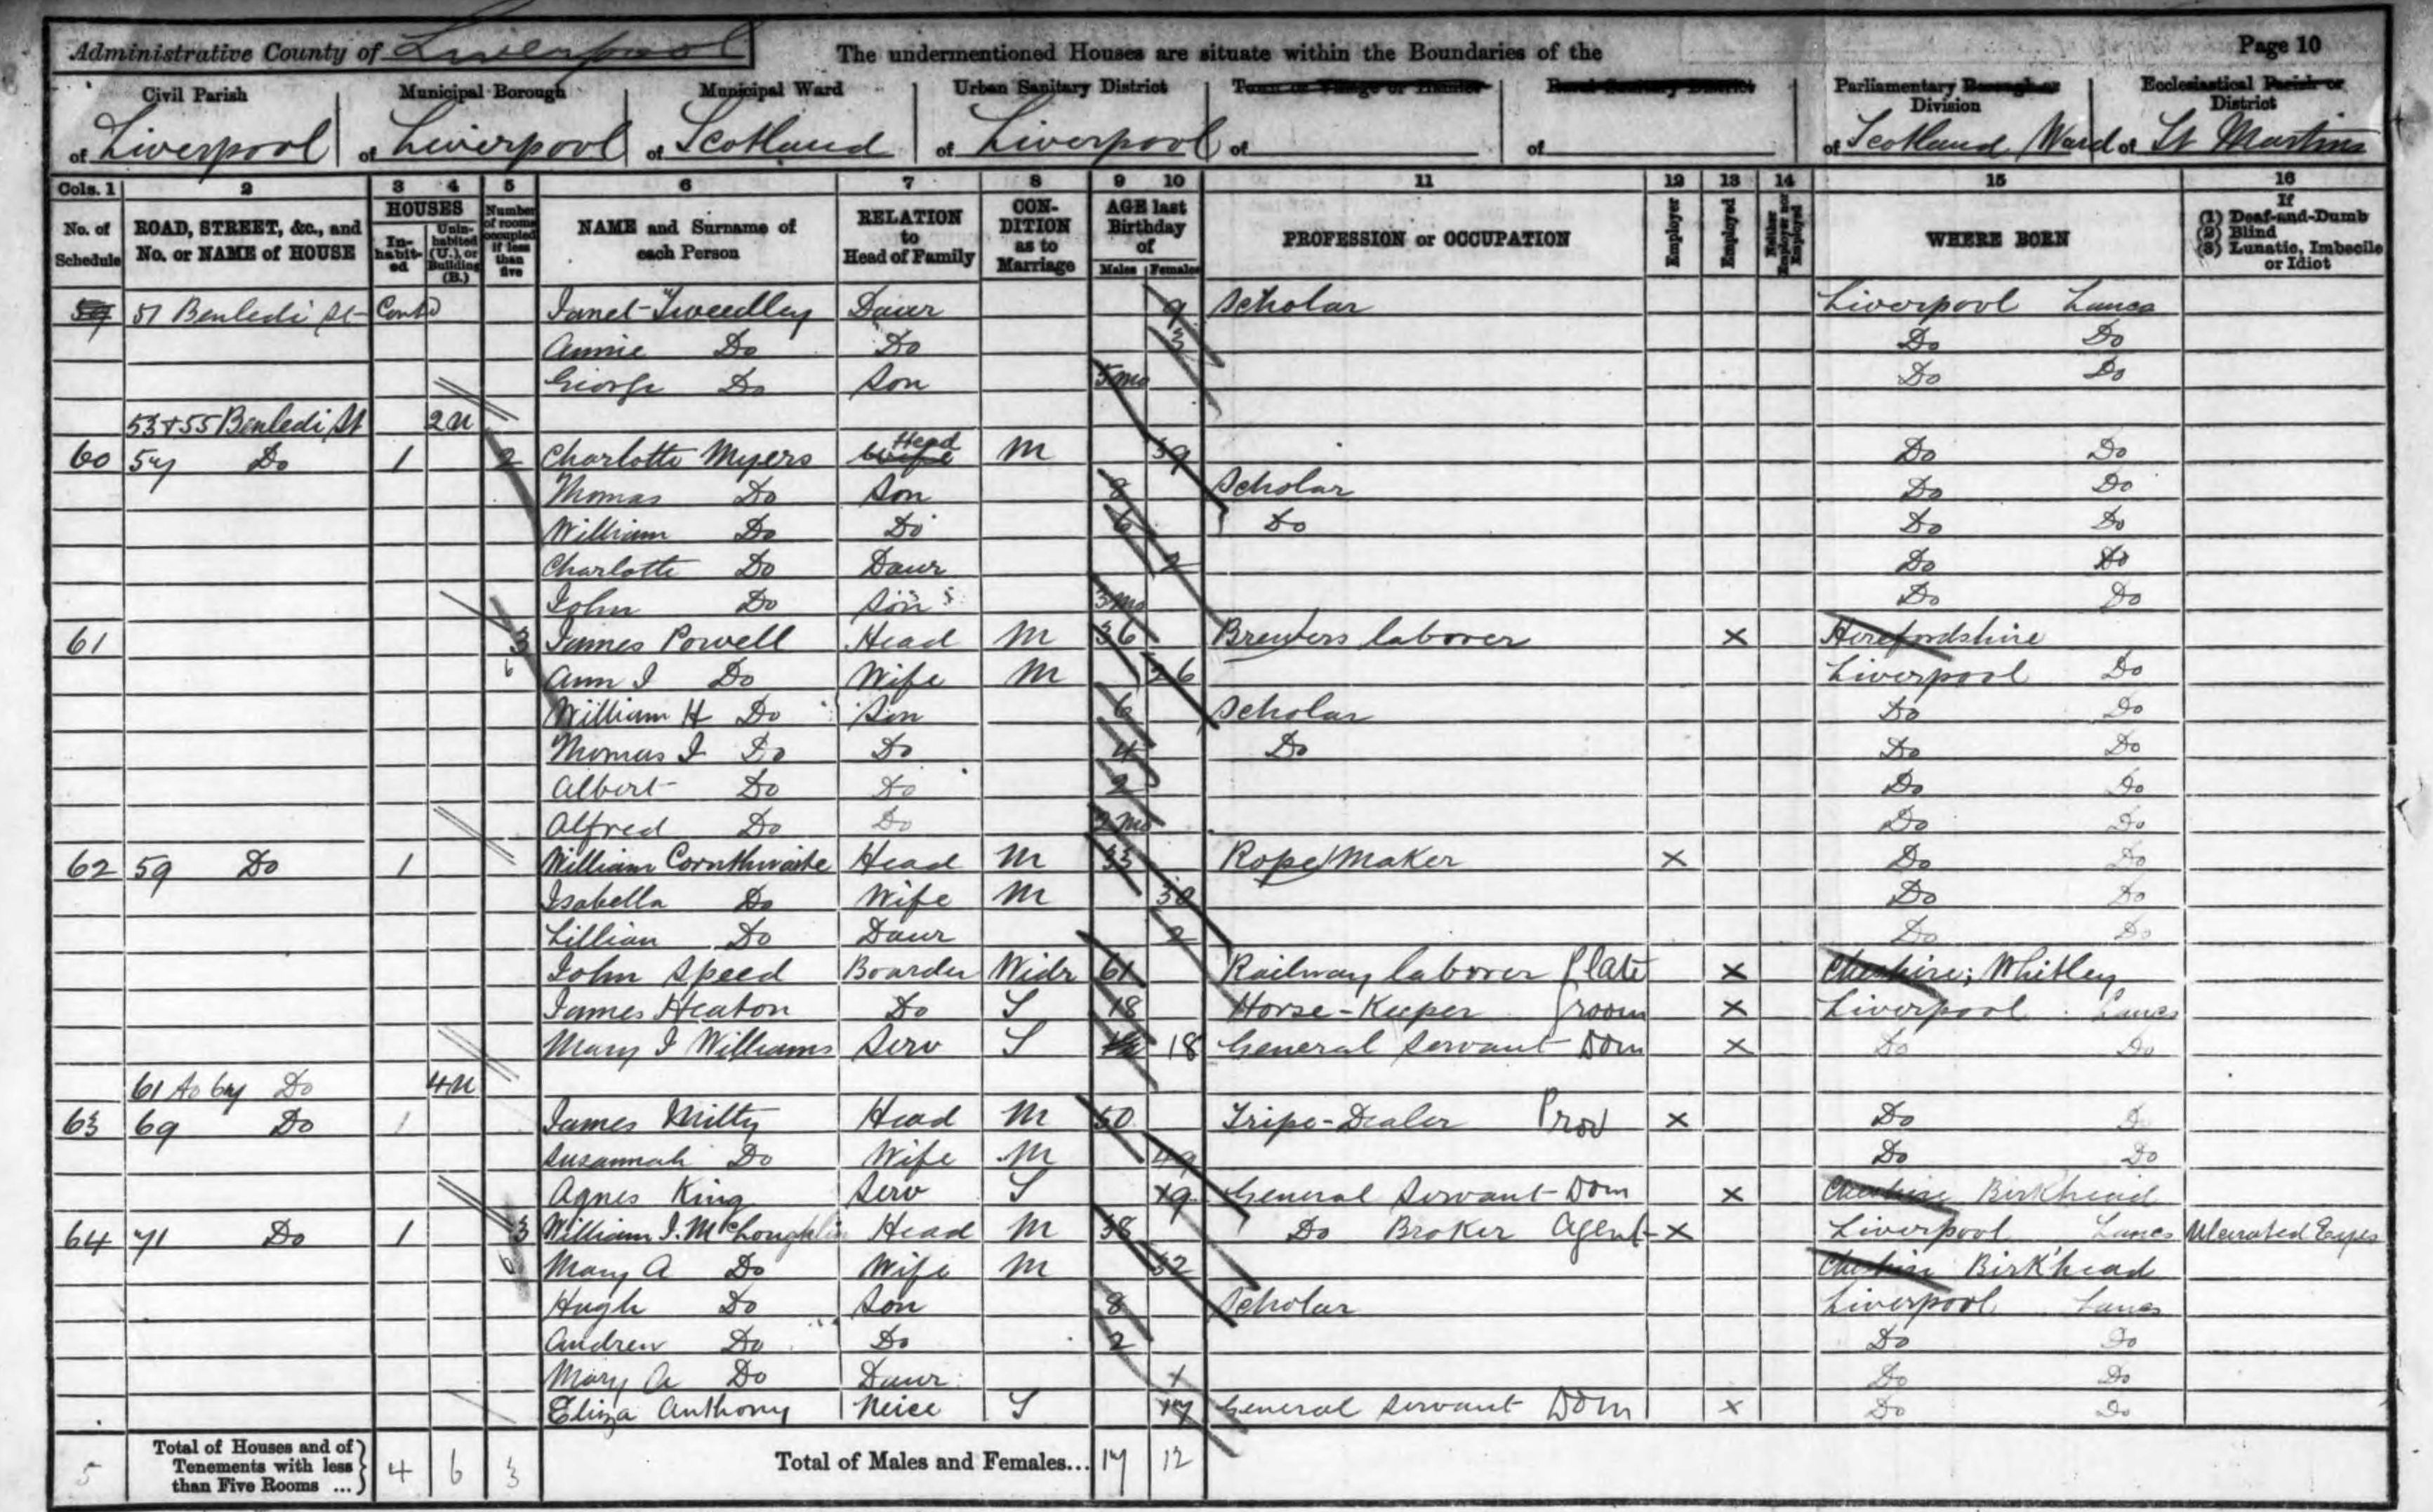 Administrative County of Liverpool The undermentioned Houses are situate within the Boundaries of the Page 10
Civil Parish Municipal Borough Municipal Ward Urban Sanitary District Town or Village or Hamlet Rural Sanitary District Parliamentary Borough or Division Ecclesiastical Parish or District
of Liverpool of Liverpool of Scotland of Liverpool of of of Scotland Ward of St Martins
Cols. 1 2 3 4 5 6 7 8 9 10 11 12 13 14 15 16
No. of Schedule ROAD, STREET, &c., and No. or NAME of HOUSE HOUSES Inhabited Uninhabited (U.), or Building (B.) Number of rooms occupied if less than five NAME and Surname of each Person RELATION to Head of Family CONDITION as to Marriage AGE last Birthday of Males Females PROFESSION or OCCUPATION Employer Employed Neither Employer nor Employed WHERE BORN If (1) Deaf-and-Dumb (2) Blind (3) Lunatic, Imbecile or Idiot
59 51 Benledi St Contd Janet Tweedley Daur 9 Scholar Liverpool Lancs
Annie Do Do 3 Do Do
George Do Son 5 mo Do Do
53+55 Benledi St 2 U
60 57 Do 1 2 Charlotte Myers Wife Head M 39 Do Do
Thomas Do Son 8 Scholar Do Do
William Do Do 6 Do Do Do
Charlotte Do Daur 2 Do Do
John Do Son 3 mo Do Do
61 3 James Powell Head M 36 Brewers laborer × Herefordshire
6 Ann J Do Wife M 26 Liverpool Do
William H Do Son 6 Scholar Do Do
Thomas J Do Do 4 Do Do Do
Albert Do Do 2 Do Do
Alfred Do Do 2 mo Do Do
62 59 Do 1 William Cornthwaite Head M 33 Rope Maker × Do Do
Isabella Do Wife M 30 Do Do
Lillian Do Daur 2 Do Do
John Speed Boarder Widr 61 Railway laborer Plate × Cheshire; Whitley
James Heaton Do S 18 Horse-Keeper Groom × Liverpool Lancs
Mary J Williams Serv S 18 General Servant Dom × Do Do
61 to 67 Do 4 U
63 69 Do 1 James Milty Head M 50 Tripe-Dealer Prov × Do Do
Susannah Do Wife M 49 Do Do
Agnes King Serv S 19 General Servant Dom × Cheshire Birkhead
64 71 Do 1 3 William J. McLoughlin Head M 38 Do Broker Agent × Liverpool Lancs Ulcerated Eyes
6 Mary A Do Wife M 32 Cheshire Birk'head
Hugh Do Son 8 Scholar Liverpool Lancs
Andrew Do Do 2 Do Do
Mary A Do Daur Do Do
Eliza Anthony Neice S 17 General Servant Dom × Do Do
5 Total of Houses and of Tenements with less than Five Rooms ... 4 6 3 Total of Males and Females... 17 12